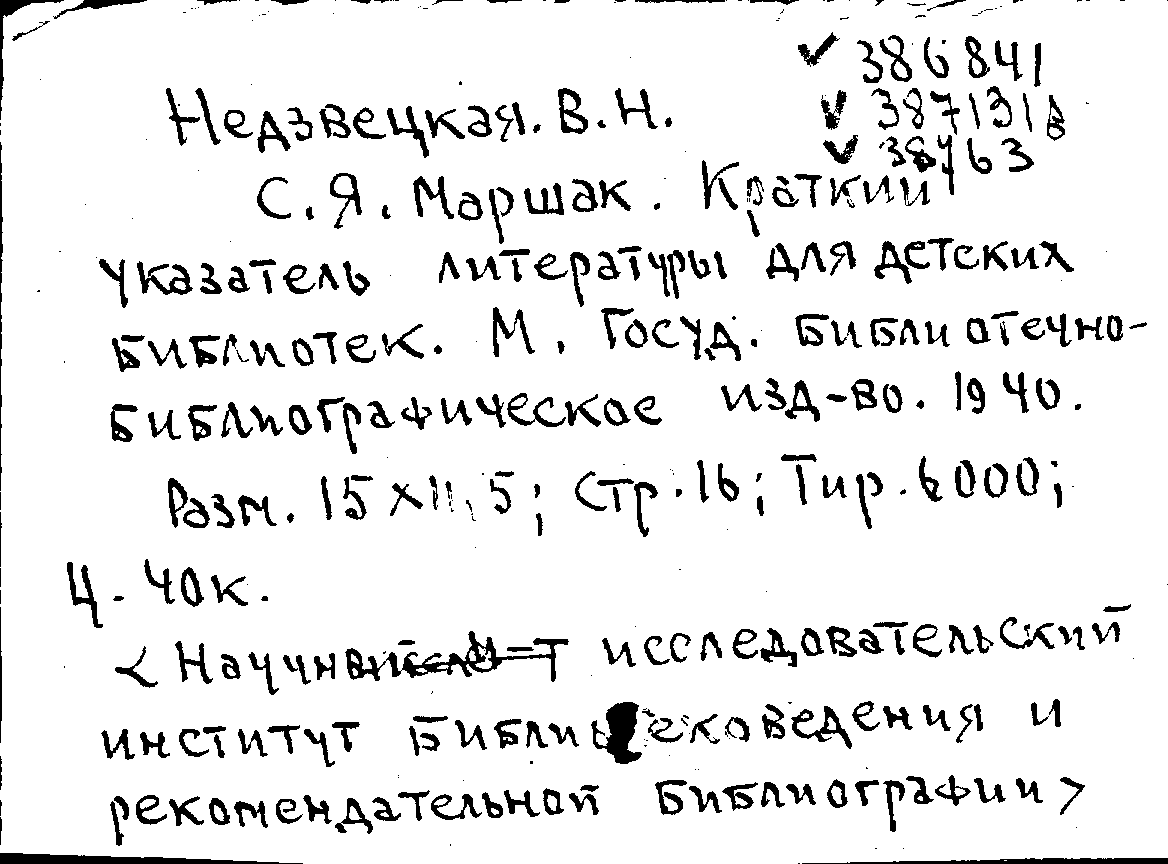 386841
387131 в
Недзвецкая. В. Н.
С. Я. Маршак. Краткий
указатель литературы для детских
библиотек. М. Госуд. библиотечно-
библиографическое изд-во. 1940.
Разм. 15 х 11,5; Стр. 16; Тир. 6000;
Ц. 40к.
< Научно исследовательский
институт библиотековедения и
рекомендательной библиографии >